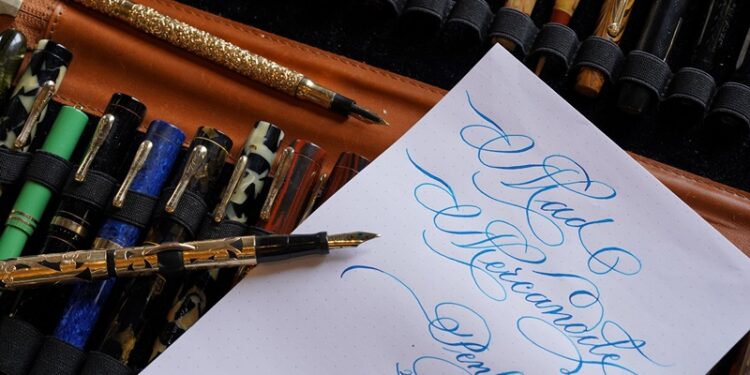 Mad
Mercandite
Pen